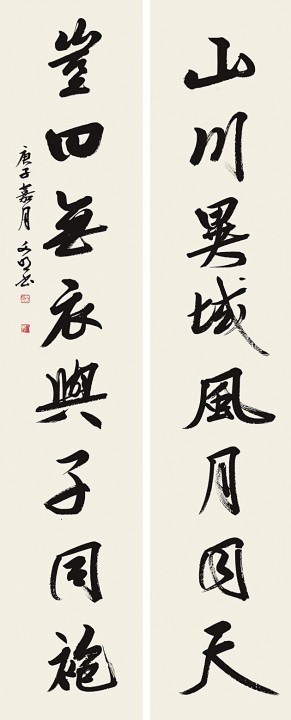 山川異域風月同天
豈曰無衣與子同袍
庚子嘉月